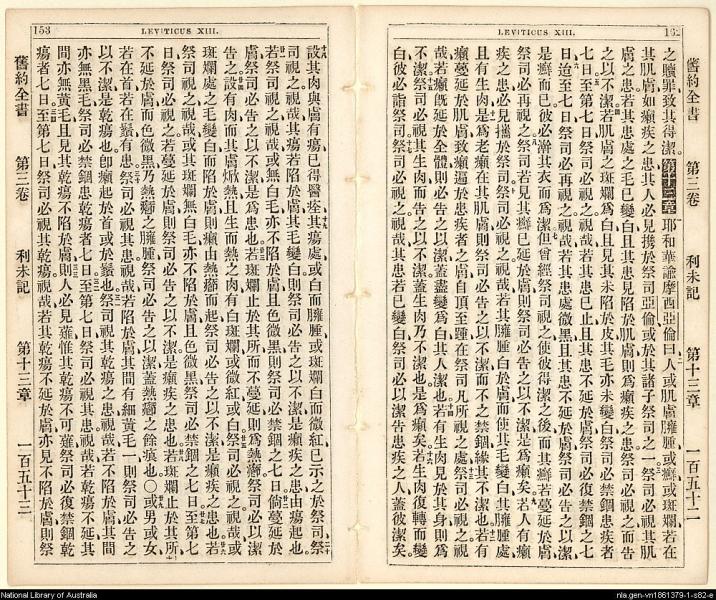 LEVITICUS XIII.
舊約全書 第三卷 利未記 第十三章 一百五十二
之贖罪致其得潔第十三章耶和華諭摩西亞倫曰人或肌膚臃腫或癬或斑斕若在
其肌膚如癩疾之患其人必見攜於祭司亞倫或於其諸子祭司之一祭司必視其肌
膚之患若其患處之毛已變白且其患見陷於肌膚則爲癩疾之患祭司必視之而告
之以不潔若肌膚之斑斕爲白且見其未陷於皮其毛亦未變白祭司必禁錮患疾者
七日至第七日祭司必視之視哉若其患已止且其患不延於膚祭司必復禁錮之七
日迨至七日祭司必再視之視哉若其患處微黑且其患不延於膚祭司必告之以潔
是癬而已彼必澣其衣而爲潔但曾經祭司視之使彼得潔之後而其癬若蔓延於膚
祭司必再視之祭司若見其癬已延於膚則祭司必告之以不潔是爲癩矣若人有癩
疾之患必見攜於祭司祭司必視之視哉若其臃腫白於膚而使其毛變白其臃腫處
且有生肉是爲老癩在其肌膚則祭司必告之以不潔而不之禁錮緣其不潔也若有
癩蔓延於肌膚致癩遍於患疾者之膚自頂至踵在祭司凡所視之處祭司必視之視
哉若癩旣延於全體則必告之以潔蓋盡變爲白其人潔也若有生肉見於其身則爲
不潔祭司必視其生肉而告之以不潔蓋生肉乃不潔也是爲癩矣若生肉復轉而變
白彼必詣祭司祭司必視之視哉其患若已變白祭司必以潔告患疾之人蓋彼潔矣
153 LEVITICUS XIII.
設其肉與膚有瘍已得醫痊其瘍處或白而臃腫或斑斕白而微紅已示之於祭司祭
司視之視哉其瘍若陷於膚其毛變白則祭司必告之以不潔是癩疾之患由瘍起也
若祭司視之視哉或無白毛亦不陷於膚且色微黑則祭司必禁錮之七日倘蔓延於
膚祭司必告之以不潔是爲患也若斑斕止於其所而不蔓延則爲熱瘡祭司必以潔
告之設有肉而其膚焮熱且生而熱之肉有白斑斕或微紅或白祭司必視之視哉或
斑斕處之毛變白而陷於膚則癩由熱瘡而起祭司必告之以不潔是癩疾之患也若
祭司視之視哉或其斑斕無白毛亦不陷於膚且色微黑祭司必禁錮之七日至第七
日祭司必視之若蔓延於膚則祭司必告之以不潔是癩疾之患也若斑斕止於其所
不延於膚而色微黑乃熱瘡之臃腫祭司必告之以潔蓋熱瘡之餘痕也○或男或女
若在首若在鬚有患祭司必視其患視哉若陷於膚其間有細黃毛則祭司必告之
以不潔是乾瘍也卽癩起於首或於鬚也祭司視其乾瘍之患視哉若不陷於膚其間
亦無黑毛祭司必禁錮患乾瘍者七日至第七日祭司必視其患視哉若乾瘍不延其
間亦無黃毛且見其乾瘍不陷於膚則人必見薙惟其乾瘍不可薙祭司必復禁錮乾
瘍者七日至第七日祭司必視其乾瘍視哉若其乾瘍不延於膚亦見不陷於膚則祭
舊約全書 第三卷 利未記 第十三章 一百五十三
National Library of Australia
nla.gen-vn1861379-1-s82-e